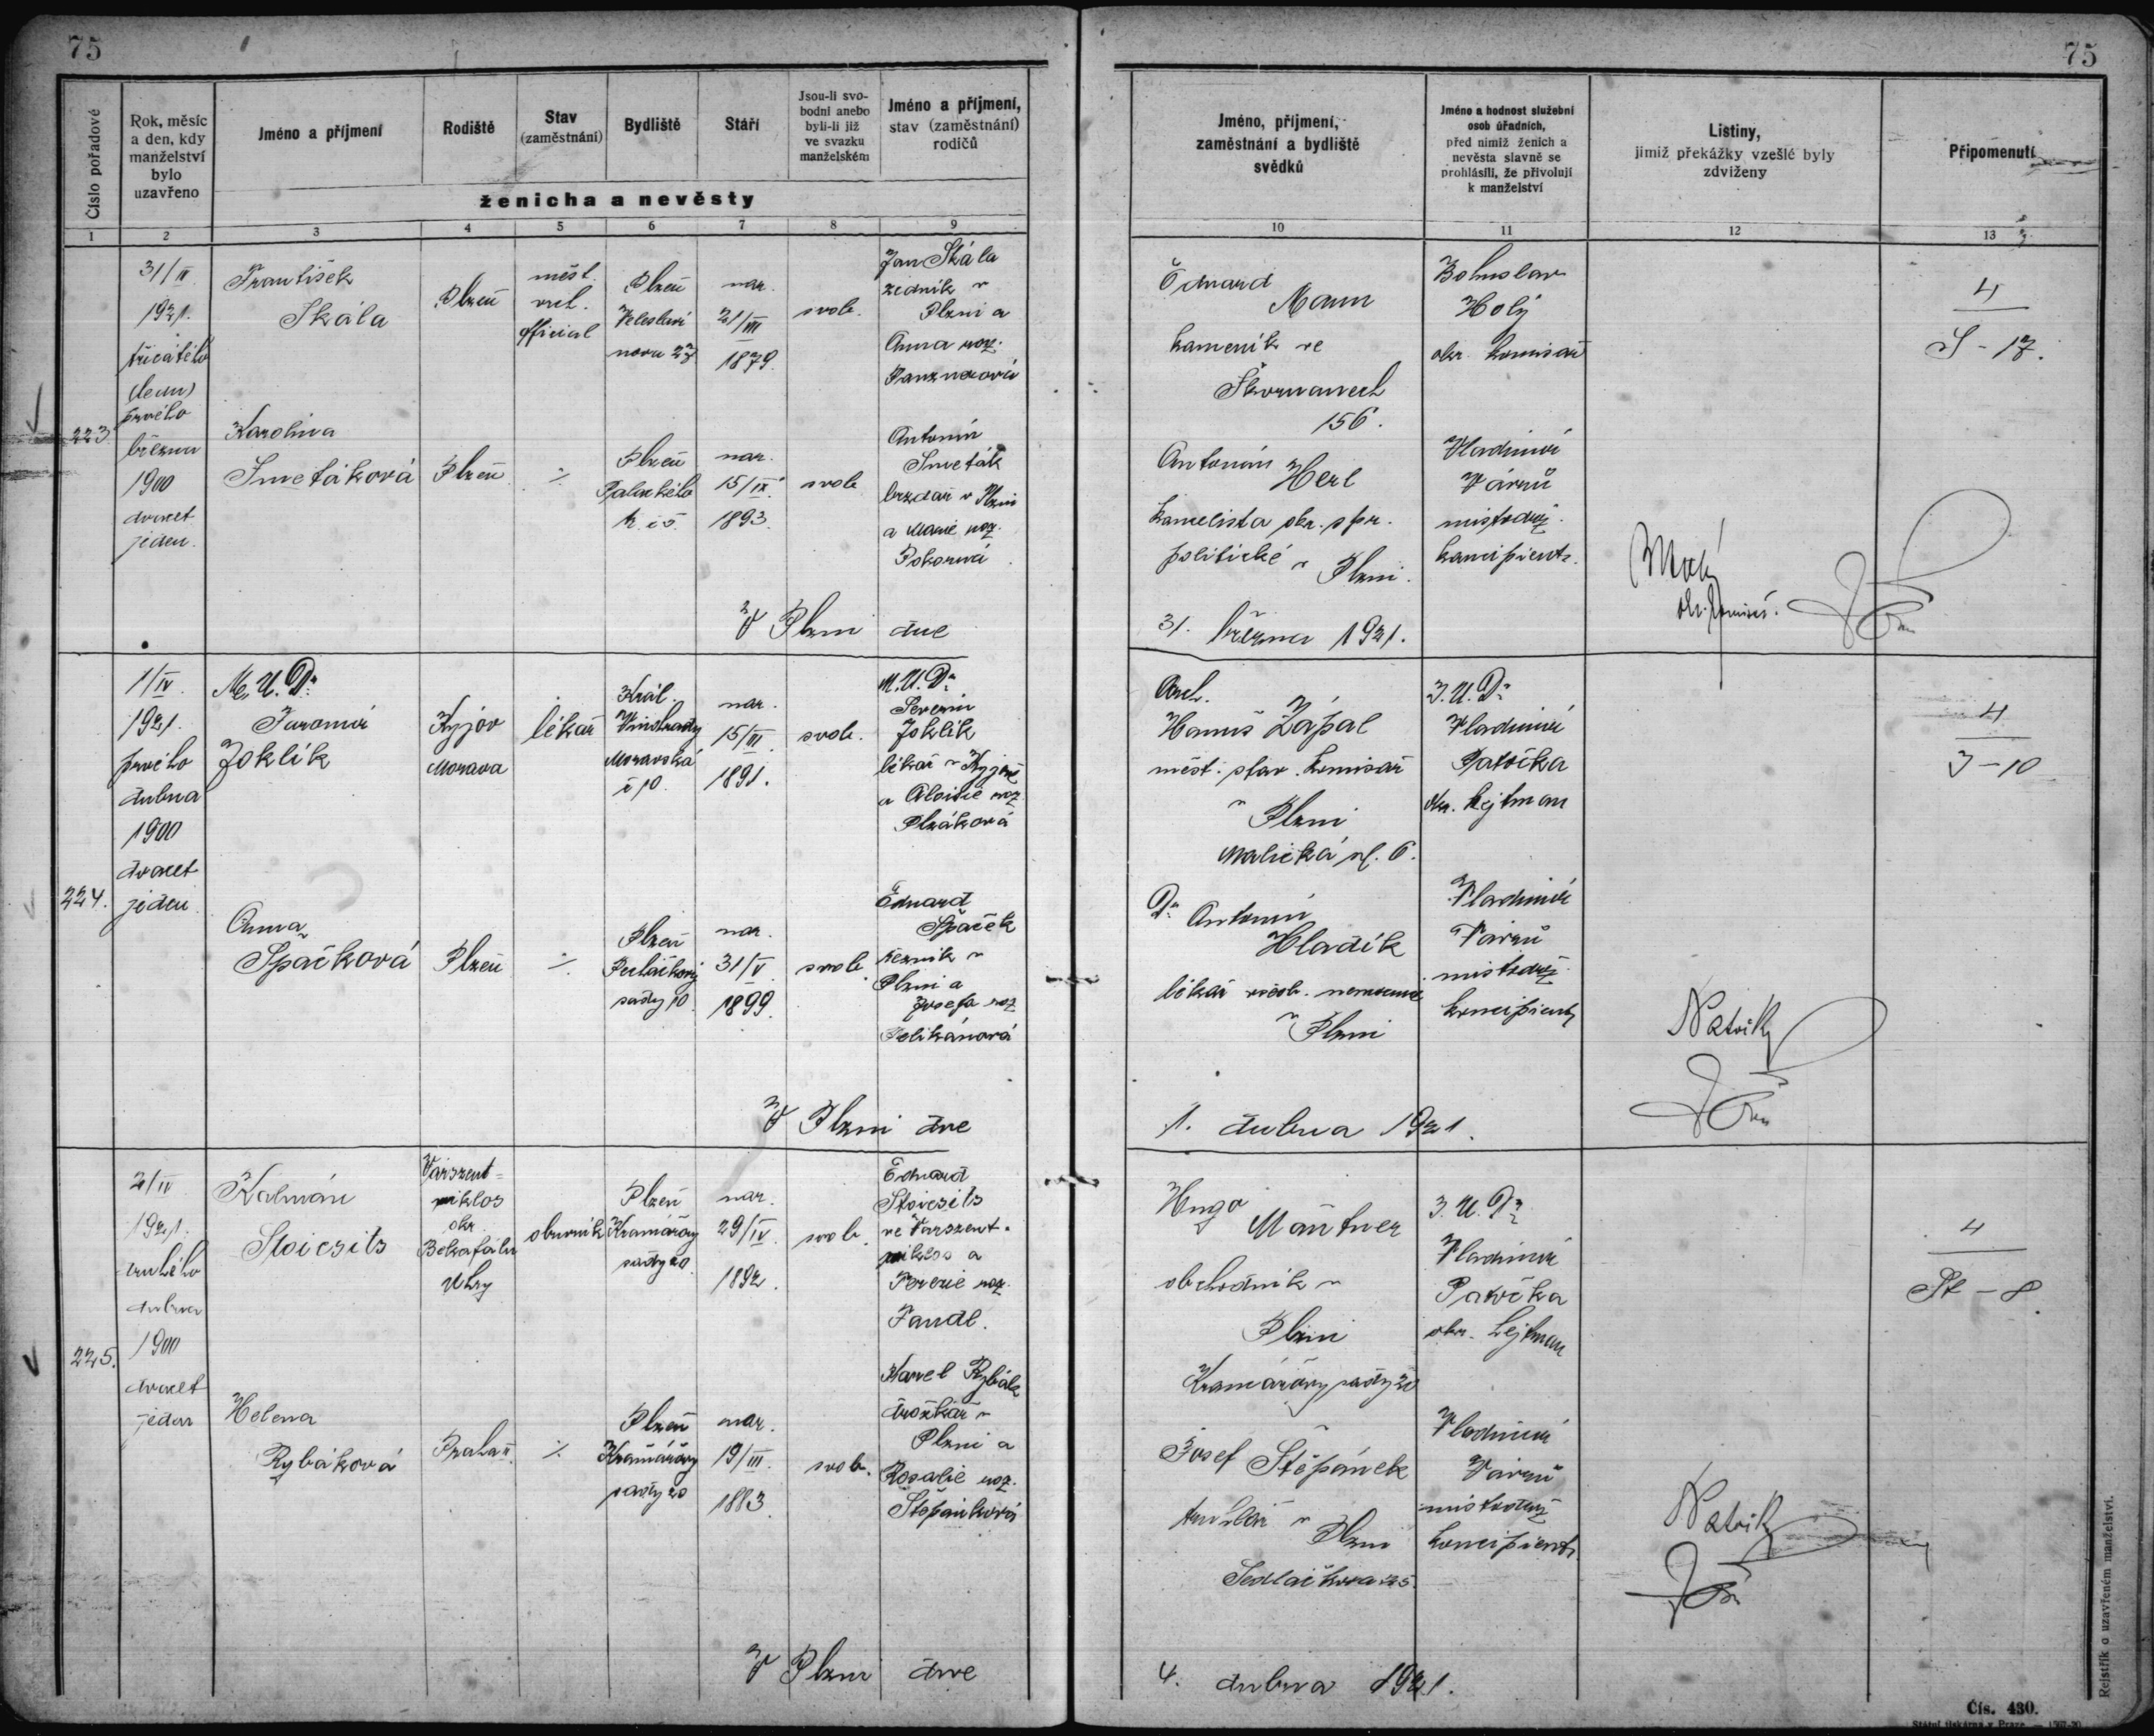 75
75
Číslo pořadové
Rok, měsíc
a den, kdy
manželství
bylo
uzavřeno
Jméno a příjmení
Rodiště
Stav
(zaměstnání)
Bydliště
Stáří
Jsou-li svo-
bodni anebo
byli-li již
ve svazku
manželském
Jméno a příjmení,
stav (zaměstnání)
rodičů
ženicha a nevěsty
Jméno, příjmení,
zaměstnání a bydliště
svědků
Jméno a hodnost služební
osob úřadních,
před nimiž ženich a
nevěsta slavně se
prohlásili, že přivolují
k manželství
Listiny,
jimiž překážky vzešlé byly
zdviženy
Připomenutí
1 2 3 4 5 6 7 8 9
10 11 12 13
223.
31/III
1921.
třicátého
prvého
března
1900
dvacet
jeden.
František
Skála
Plzeň
měst.
oficial
Plzeň
nova 23
nar.
21/VIII
1879.
svob.
Jan Skála
zedník v
Plzni a
Anna roz.
Karolina
Smetáková
Plzeň
Plzeň
Palackého
nar.
15/IX
1893.
svob
Antonín
Smeták
brzdař v Plzni
a Marie roz.
Pokorná
Eduard
Mann
kameník ve
Škvrňanech
156.
Antonín
Herl
kancelista okr. spr.
politické v Plzni.
Bohuslav
Holý
okr. komisař
Vladimír
Vávrů
místodrž.
koncipient.
4
S - 17.
V Plzni dne
31. března 1921.
224.
1/IV.
1921.
prvého
dubna
1900
dvacet
jeden
M.U.Dr
Jaromír
Joklík
Kyjov
Morava
lékař
Král.
Vinohrady
Moravská
č 10.
nar.
15/III
1891.
svob.
M.U.Dr
Severin
Joklík
lékař v Kyjově
a Aloisie roz
Plzáková
Anna
Špačková
Plzeň
Plzeň
sady 10.
nar.
31/V
1899.
svob.
Eduard
Špaček
řezník v
Plzni a
Josefa roz
Pelikánová
Arch.
Hanuš Zápal
měst. stav. komisař
v Plzni
Malická ul. 6.
Dr Antonín
Hladík
lékař všeob. nemocnice
v Plzni
J.U.Dr
Vladimír
Patočka
okr. hejtman
Vladimír
Vávrů
místodrž.
koncipient
4
J - 10
V Plzni dne
1. dubna 1921.
225.
2/IV
1921.
druhého
dubna
1900
dvacet
jeden
Kalmán
Stoicsits
Várszent=
miklos
okr.
Uhry
obuvník
Plzeň
Kramářovy
sady 20.
nar.
29/IV.
1892.
svob.
Eduard
Stoicsits
ve Varszent-
miklos a
Terezie roz.
Fandl.
Helena
Rybáková
Praha II.
Plzeň
Kramářovy
sady 20
nar.
19/III.
1883.
svob.
Karel Rybák
drožkář v
Plzni a
Rosalie roz.
Štěpánková
Hugo
Mautner
obchodník v
Plzni
Kramářovy sady 20
Josef Štěpánek
truhlář v
Plzni
Sedláčkova 25.
J.U.Dr
Vladimír
Patočka
okr. hejtman
Vladimír
Vávrů
místodrž
koncipient
4
St - 8.
V Plzni dne
4. dubna 1921.
Rejstřík o uzavřeném manželství.
Čís. 430.